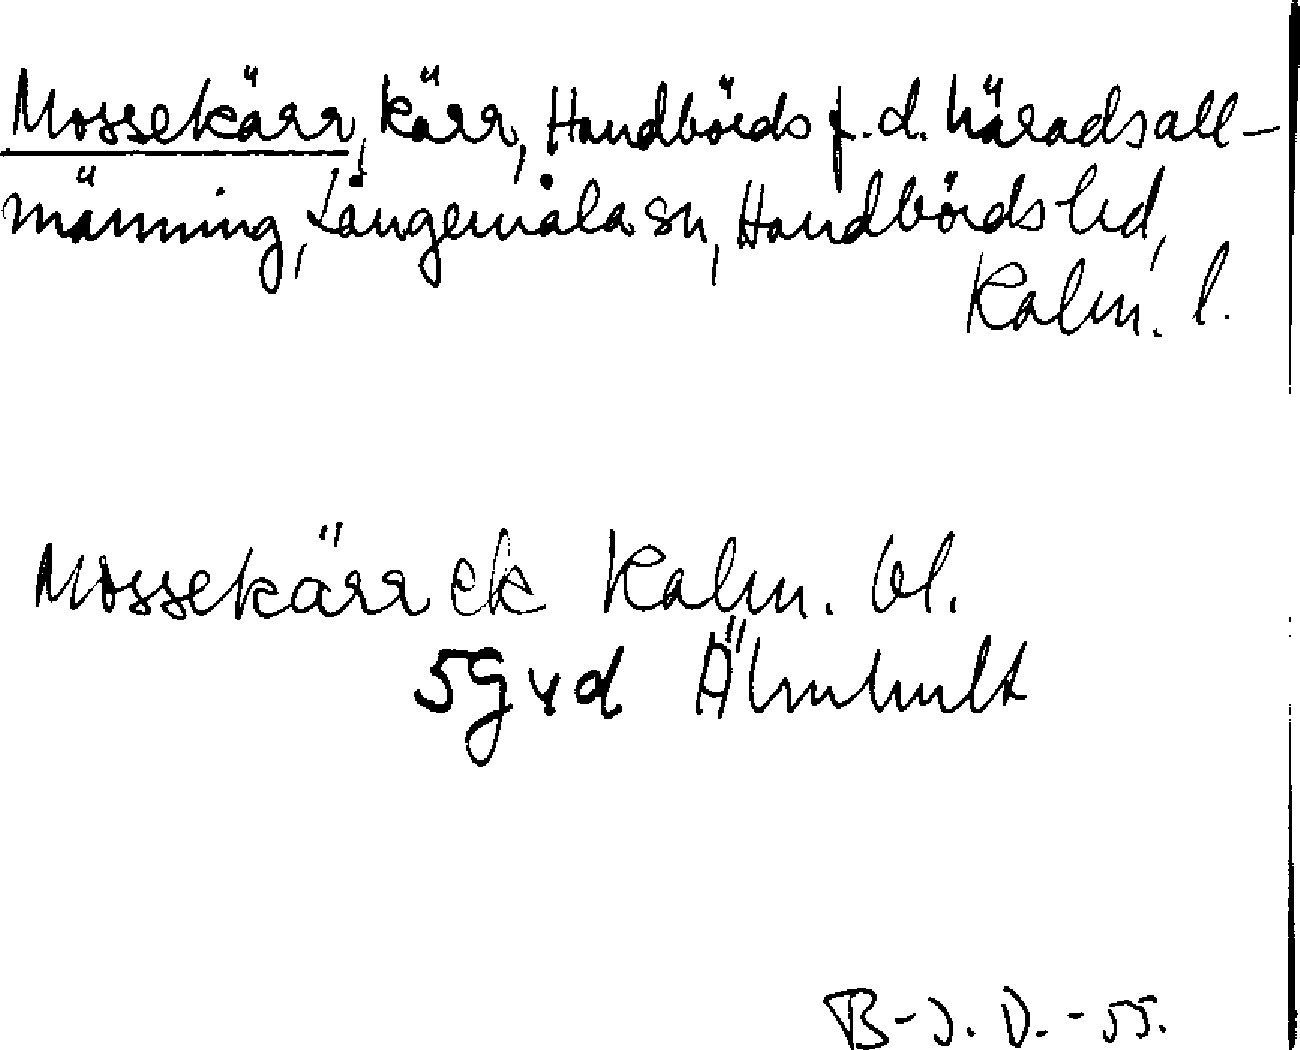 Mossekärr, kärr, Handbörds f. d. häradsall-
männing, Långemåla sn, Handbörds hd,
Kalm. l.
Mossekärr ek Kalm. bl.
5G vd Älmhult
B-J. D. -55.